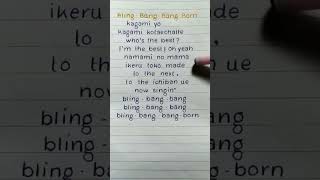 Bling-Bang-Bang-Born
kagami yo
kagami kotaechatte
who's the best?
I'm the best! oh yeah
namami no mama
ikeru toko made
to the next,
to the ichiban ue
now singin'
bling-bang-bang
bling-bang-bang
bling-bang-bang-born